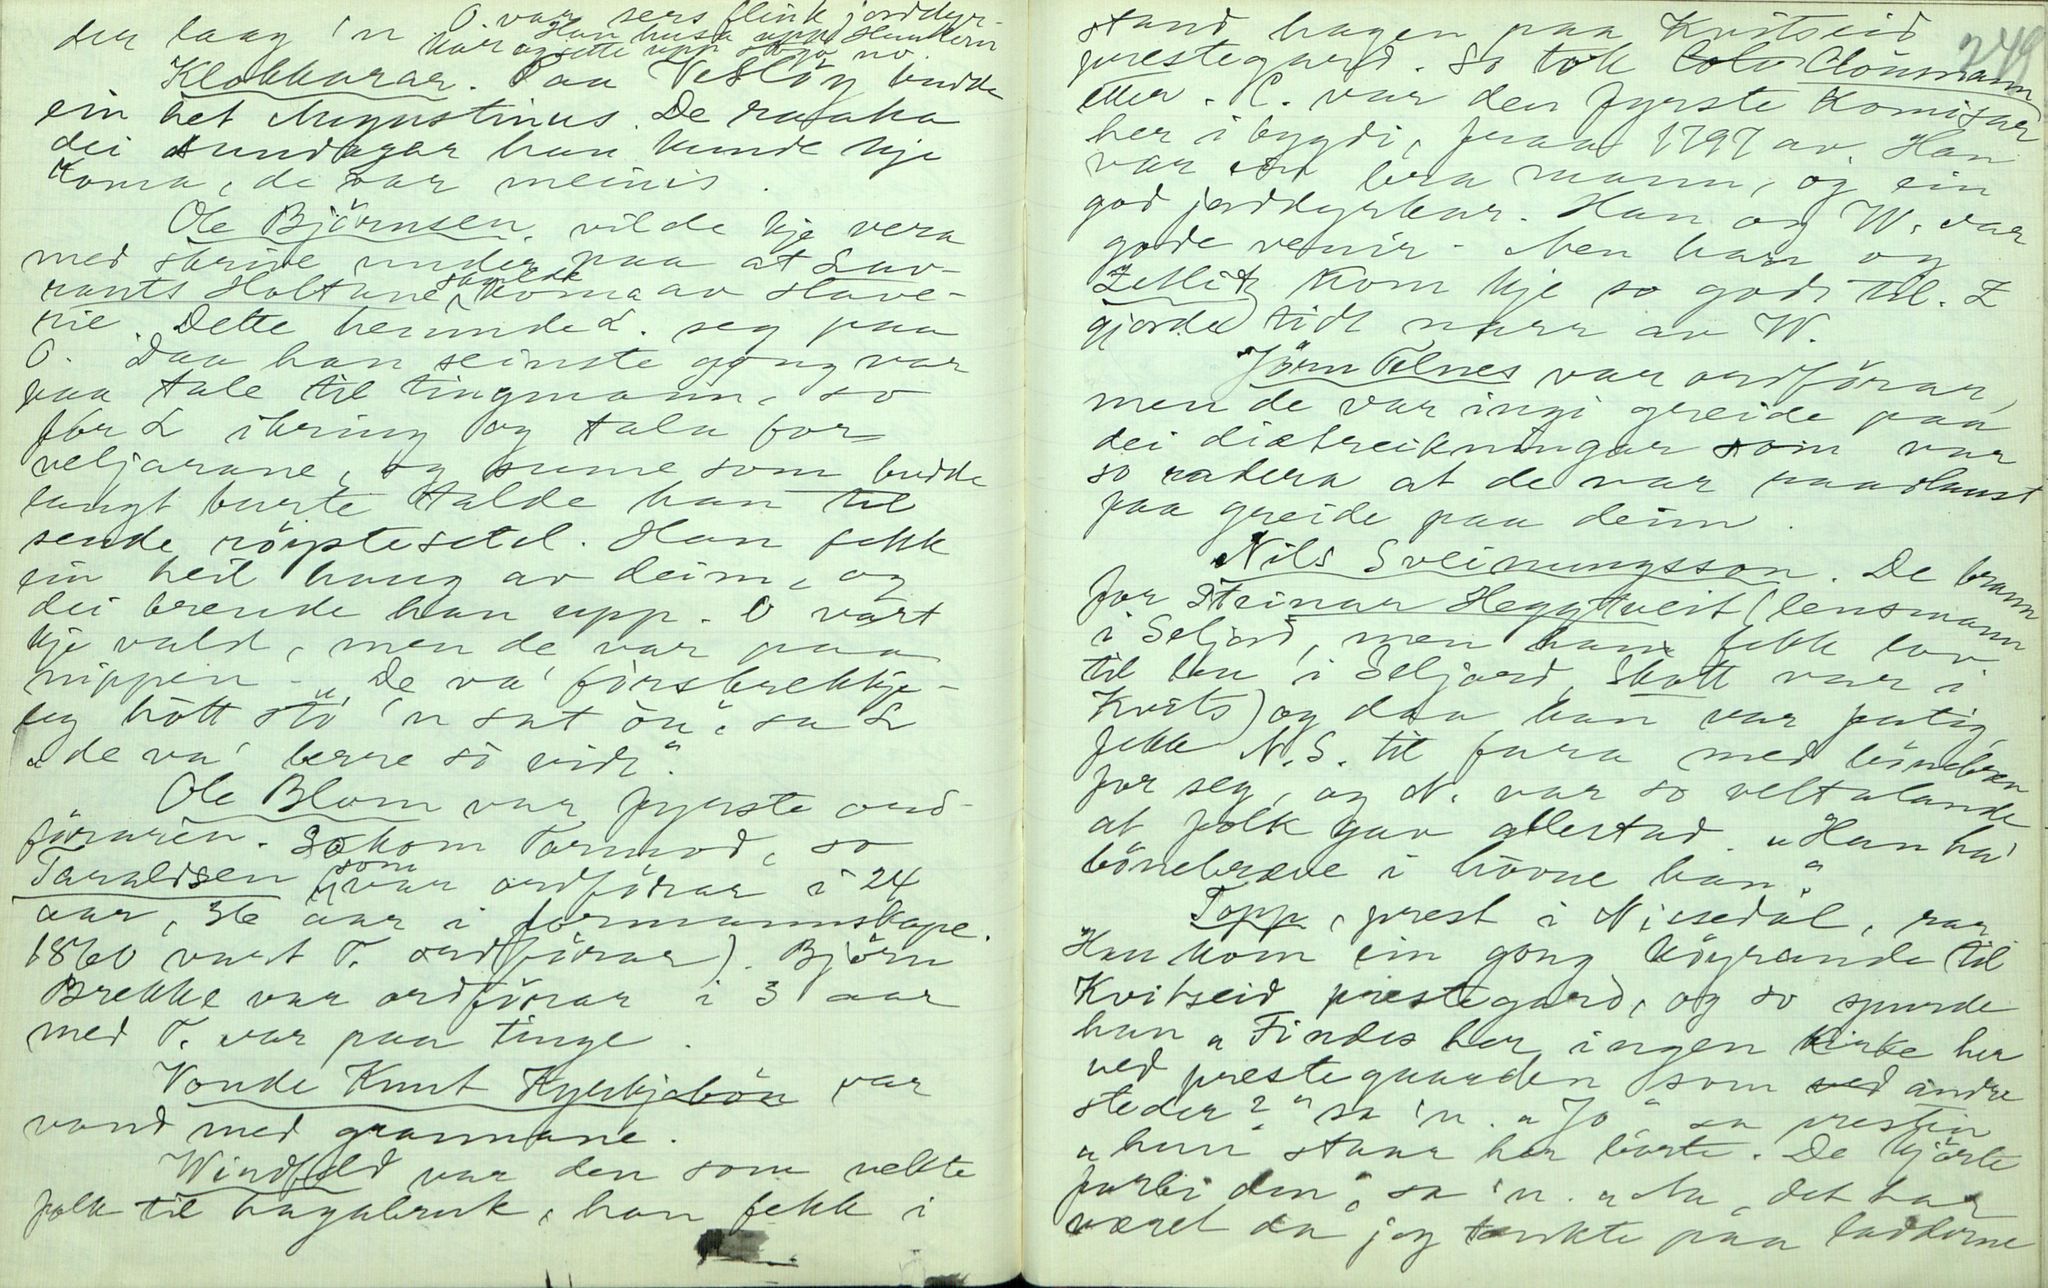 O. var sers flink jorddyr-
der laag 'n Han husa uppe
kar og sette upp no.
Klokkarar. Paa Vesløy budde
ein het Augustinus. De raaka
dei sundagar han kunde kje
koma, de var meinis.
Ole Björnsen. vilde kje vera
med skrive under paa at Lav-
rants Holtane skulde koma av Have-
rie. Dette hemnde L. seg paa
O. Daa han seinste gong var
paa tale til tingmann, so
for L ikring og tala for
veljarane, og sume som budde
langt burte talde han til
sende röystesetel. Han fekk
ein heil haug av deim, og
dei brende han upp. O vart
kje vald, men de var paa
nippen - De va'
eg
„de va' berre so vidt".
Ole Blom var fyrste ord-
föraren. So kom Tormod, so
Taraldsen (som var ordförar i 24
aar, 36 aar i formannskape.
1860 vart T. ordförar). Björn
Brekke var ordförar i 3 aar
med T. var paa tinge.
Vonde Knut Kyrkjebön var
vond med grannane.
Windfeld var den som vekte
folk til hagabruk, han fekk i
249
stand hagen paa Kvitseid
prestegard. So tok Clöumann
etter. C. var den fyrste Komisær
her i bygdi, fraa 1797 av. Han
var ein bra mann, og ein
god jorddyrkar. Han og W. var
gode venir. Men han og
Zetlitz kom kje so godt til. Z
gjorde tidt narr av W.
Jörn Telnes var ordförar,
men de var ingi greide paa
dei diætreikningar som var
so radera at de var raadlaust
faa greide paa deim.
Nils Sveinungsson. De brann
for Steinar Heggtveit (lensmann
i Seljord, men han fekk lov
til bu i Seljord, Skott var i
Kvits) og daa han var fatig,
fekk N.S. til fara med bönebrev
for seg, og N. var so veltalande
at folk gav allestad. „Han ha'
bönebræve i hövne han".
Topp, prest i Nissedal, rar
Han kom ein gong köyrande til
Kvitseid prestegard, og so spurde
han „Findes her ingen kirke her
ved prestegaarden som ved andre
steder?" sa 'n. „Jo" sa presten
„hun staar her borte. De kjörte
forbi den", sa 'n. „Aa, det har
været da jeg tænkte paa